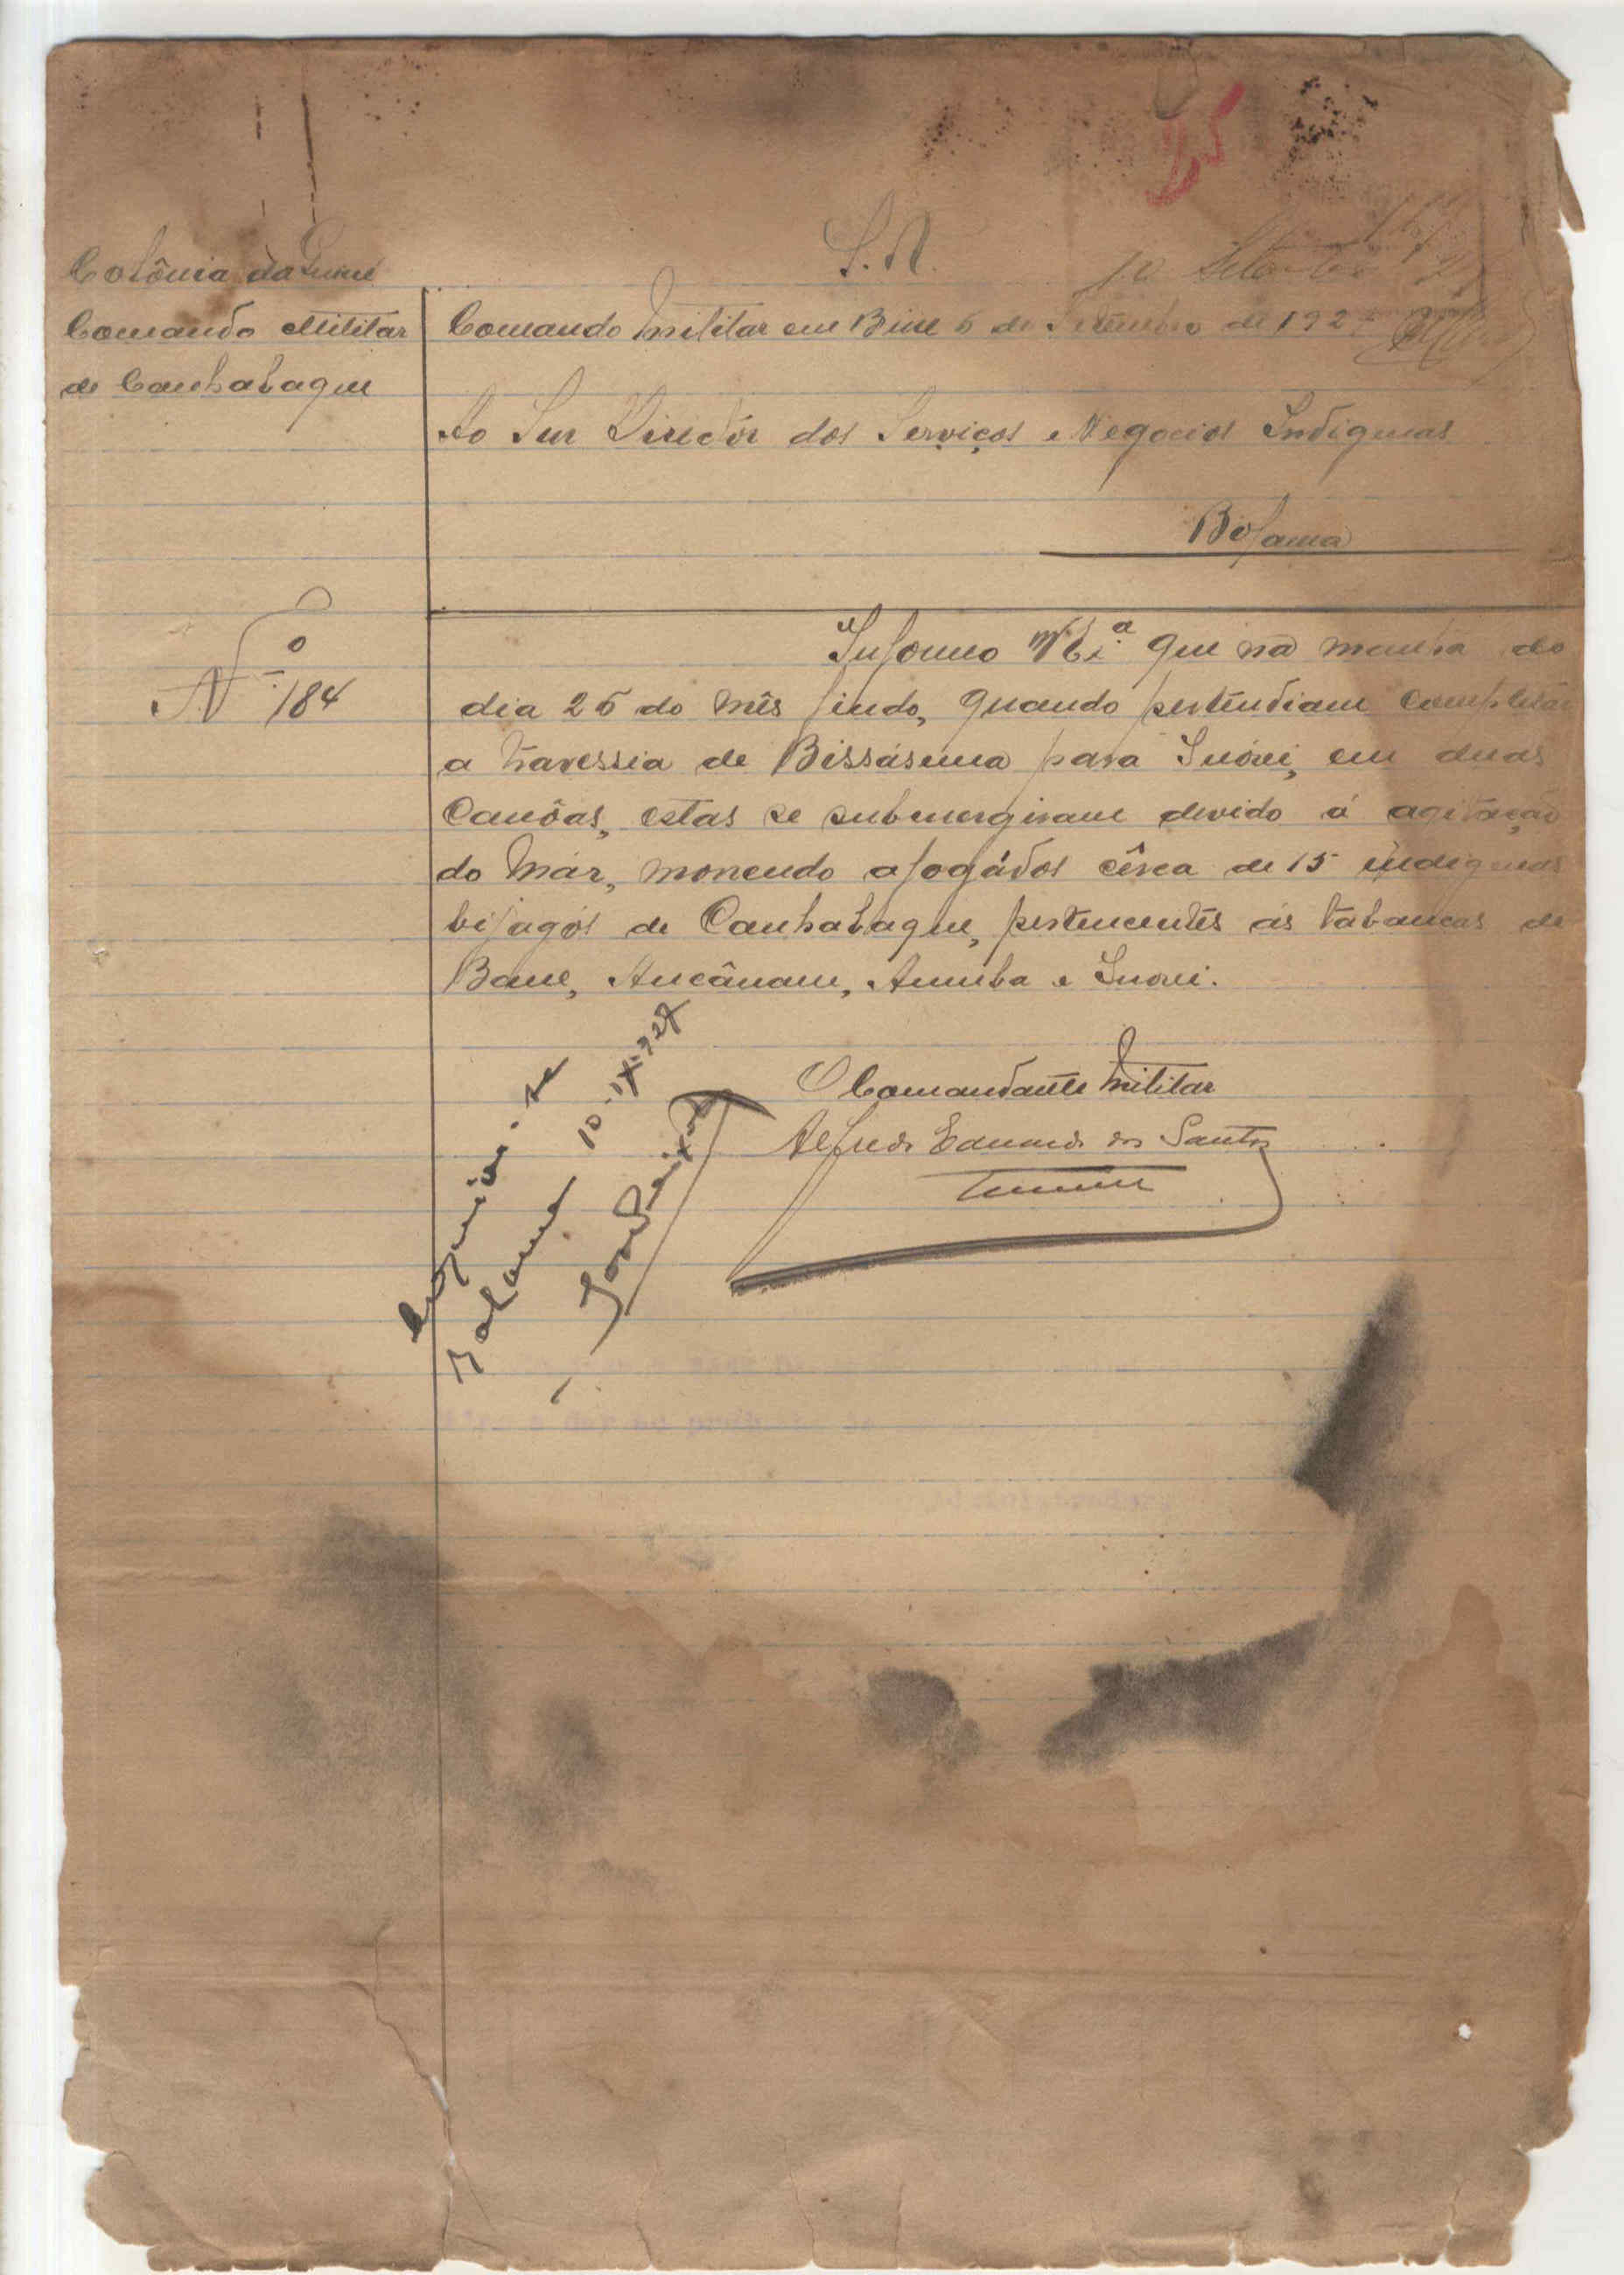 25
S. N.
10 Setembro
Colônia da Guiné
Comando Militar
de Canhabaque
Comando Militar em Bine 5 de Setembro de 1927
Ao Snr Diredór dos Serviços e Negocios Indigenas
Bolama
Nº 184
Informo V. Ex.ª que na manha do
dia 25 do mês findo, quando pertendiam completar
a travessia de Bissássema para Inórei, em duas
Canôas, estas se submergiram devido á agitação
do Már, morrendo afogádos cêrca de 15 indigenas
bijagós de Canhabaque, pertencentes ás tabancas de
Bane, Ancânam, Anumba e Inorei.
O Comandante Militar
Alfredo Eduardo dos Santos
Tenente
Arquive-se
Bolama 10-IX-927